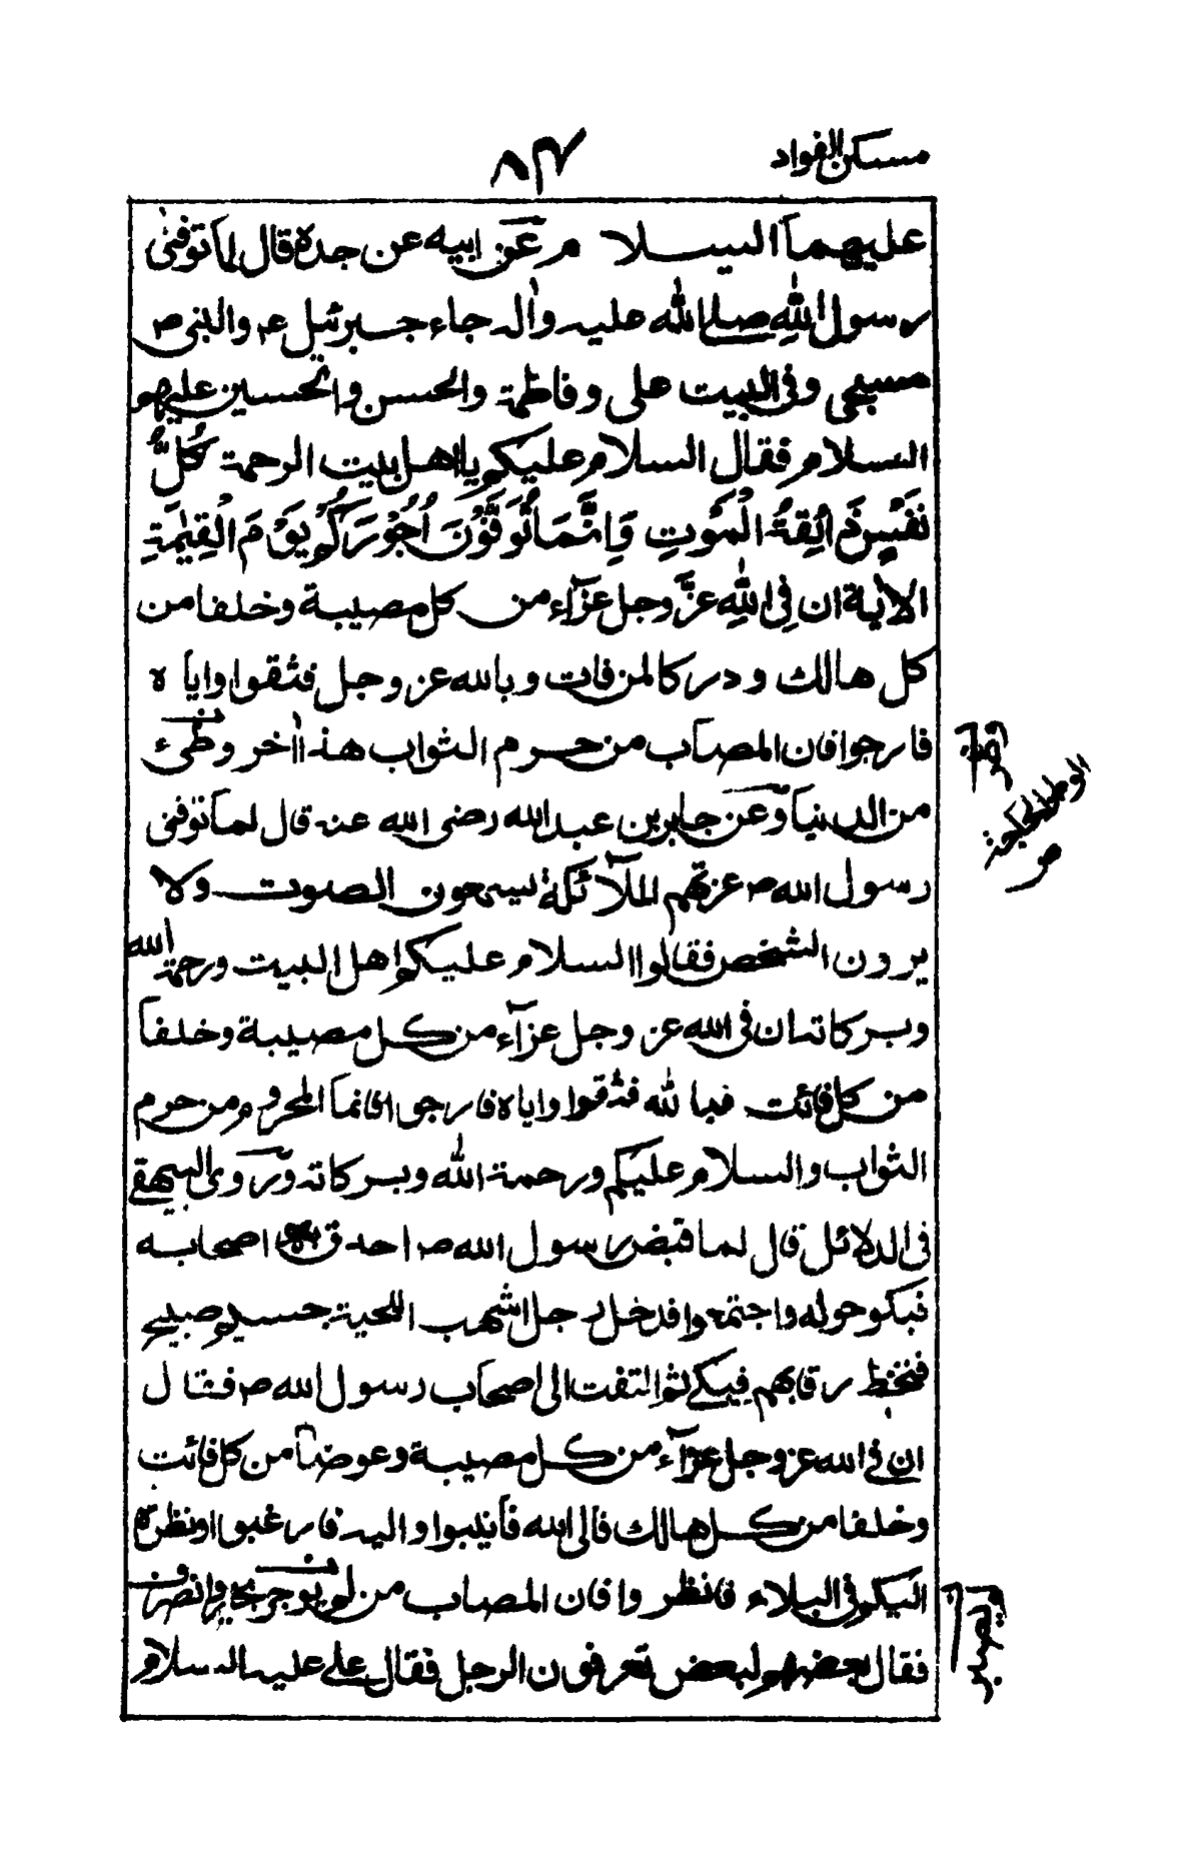 مسكن الفواد
۸۴
عليهما السلام عن ابيه عن جده قال لما توفى
رسول الله صلى الله عليه واله جاء جبرئيل ع والنبى ص
مسجى وفى البيت على وفاطمة والحسن والحسين عليهم
السلام فقال السلام عليكم يا اهل بيت الرحمة كُلُّ
نَفْسٍ ذَائِقَةُ الْمَوْتِ وَاِنَّمَا تُوَفَّوْنَ اُجُوْرَكُمْ يَوْمَ الْقِيٰمَةِ
الاٰية ان فِى اللهِ عزَّ وجل عزاء من كل مصيبة وخلفا من
كل هالك ودركا لمن فات وبالله عز وجل فثقوا واياه
فارجوا فان المصاب من حرم الثواب هذا اٰخر وطىء
من الدنيا وعن جابر بن عبد الله رضى الله عنه قال لما توفى
رسول الله ص عزتهم الملائكة يسمعون الصوت ولا
يرون الشخص فقالوا السلام عليكم اهل البيت ورحمة الله
وبركاته ان فى الله عز وجل عزاء من كل مصيبة وخلفا
من كل فائت فبالله فثقوا واياه فارجوا فانما المحروم من حرم
الثواب والسلام عليكم ورحمة الله وبركاته وروى البيهقى
فى الدلائل قال لما قبض رسول الله ص احدق به اصحابه
فبكوا حوله واجتمعوا فدخل رجل اشهب اللحية جسيم صبيح
فتخطى رقابهم فبكى ثم التفت الى اصحاب رسول الله ص فقال
ان فى الله عز وجل عزاء من كل مصيبة وعوضا من كل فائت
وخلفا من كل هالك فالى الله فانيبوا واليه فارغبوا ونظره
اليكم فى البلاء فانظروا فان المصاب من لم يوجر وانصرف
فقال بعضهم لبعض تعرفون الرجل فقال على عليه السلام